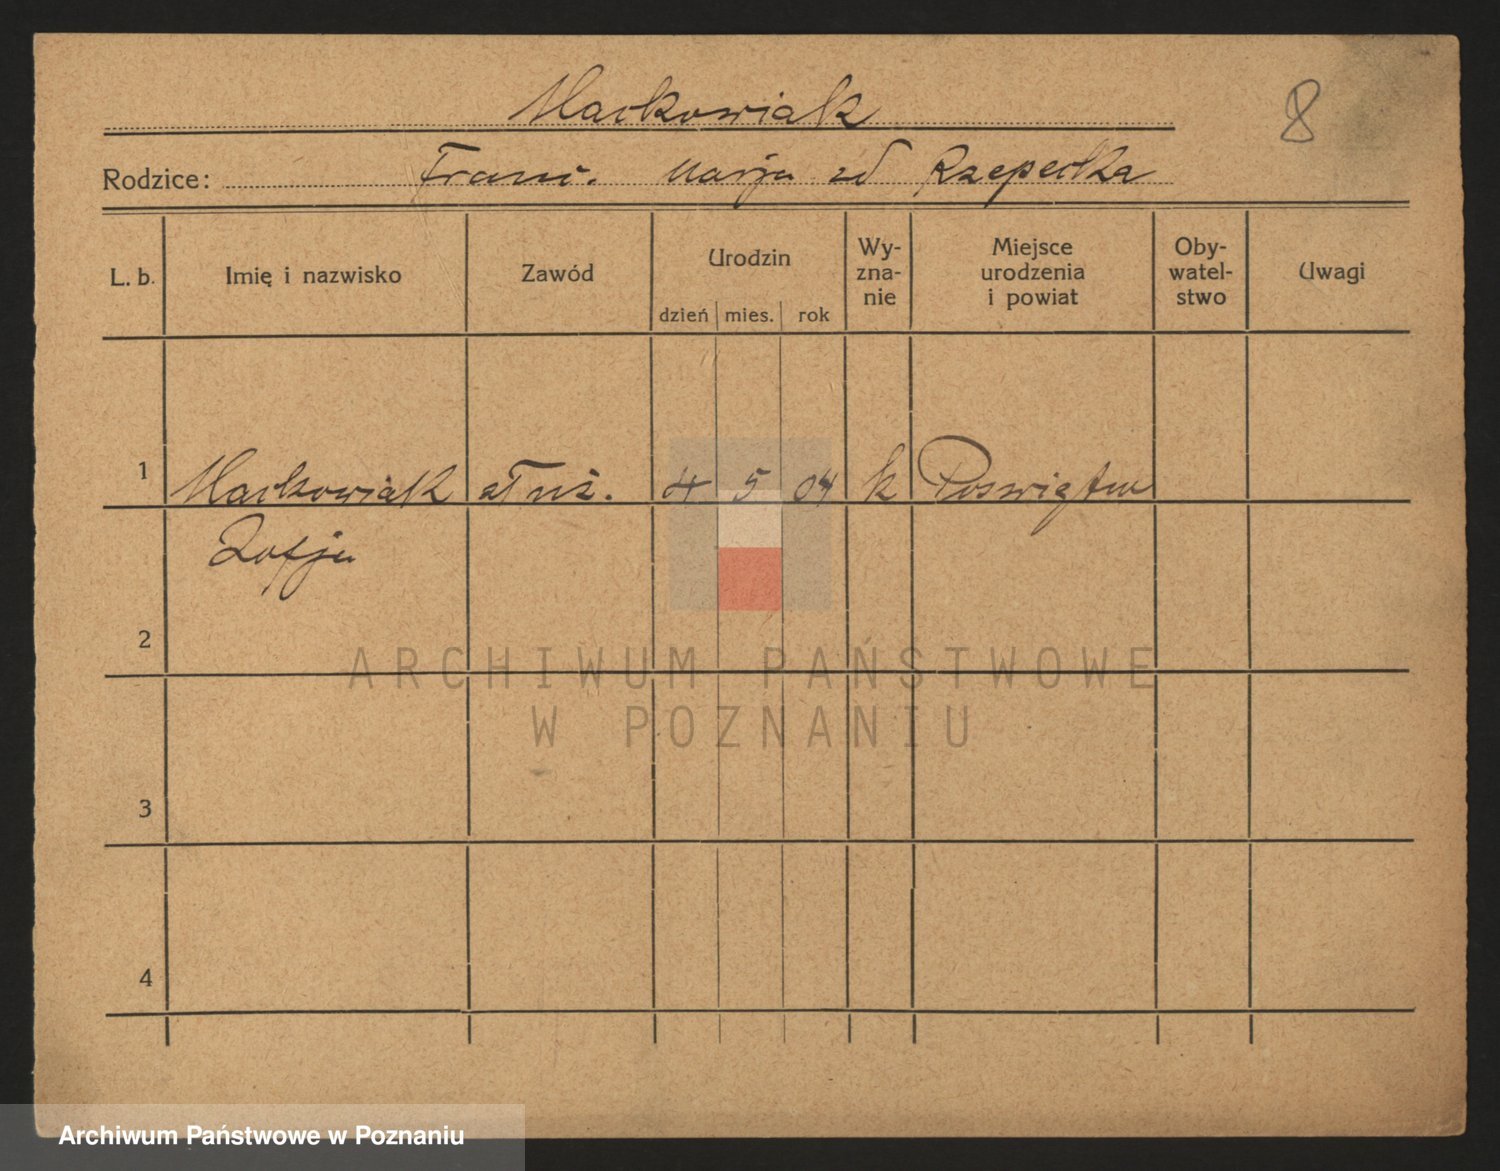 Mackowiak
8
Rodzice: Franc. Marja zd Rzepecka
L. b. Imię i nazwisko Zawód Urodzin dzień mies. rok Wy-zna-nie Miejsce urodzenia i powiat Oby-watel-stwo Uwagi
1 Mackowiak służ. 4 5 04 k Poswiętno
Zofja
2
3
4
ARCHIWUM PAŃSTWOWE
W POZNANIU
Archiwum Państwowe w Poznaniu